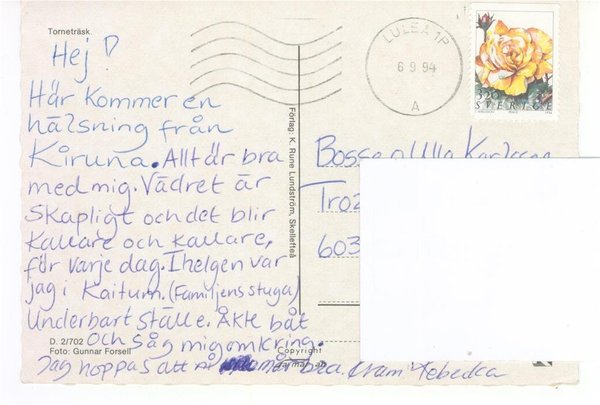 Torneträsk
Hej!
Här kommer en
hälsning från
Kiruna. Allt är bra
med mig. Vädret är
skapligt och det blir
kallare och kallare,
för varje dag. I helgen var
jag i Kaitum. (Familjens stuga)
Underbart ställe. Åkte båt
och såg mig omkring.
Jag hoppas att ni mår bra. Kram Rebecka
D. 2/702
Foto: Gunnar Forsell
Förlag: K. Rune Lundström, Skellefteå
Copyright
LULEÅ 1P
6 9 94
A
3.20
SVERIGE
Bosse o Ulla
603